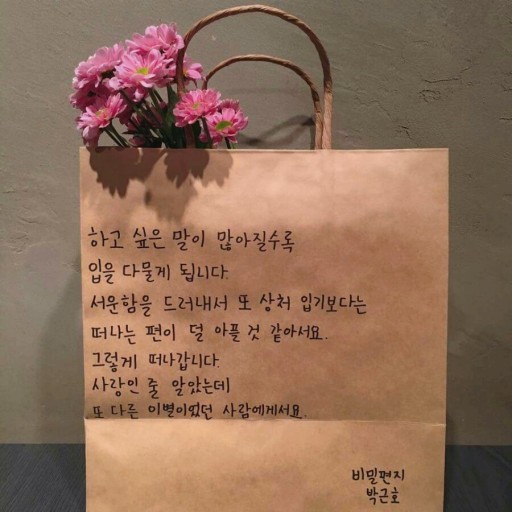 하고 싶은 말이 많아질수록
입을 다물게 됩니다.
서운함을 드러내서 또 상처 입기보다는
떠나는 편이 덜 아플 것 같아서요.
그렇게 떠나갑니다.
사랑인 줄 알았는데
또 다른 이별이었던 사람에게서요.
비밀편지
박근호